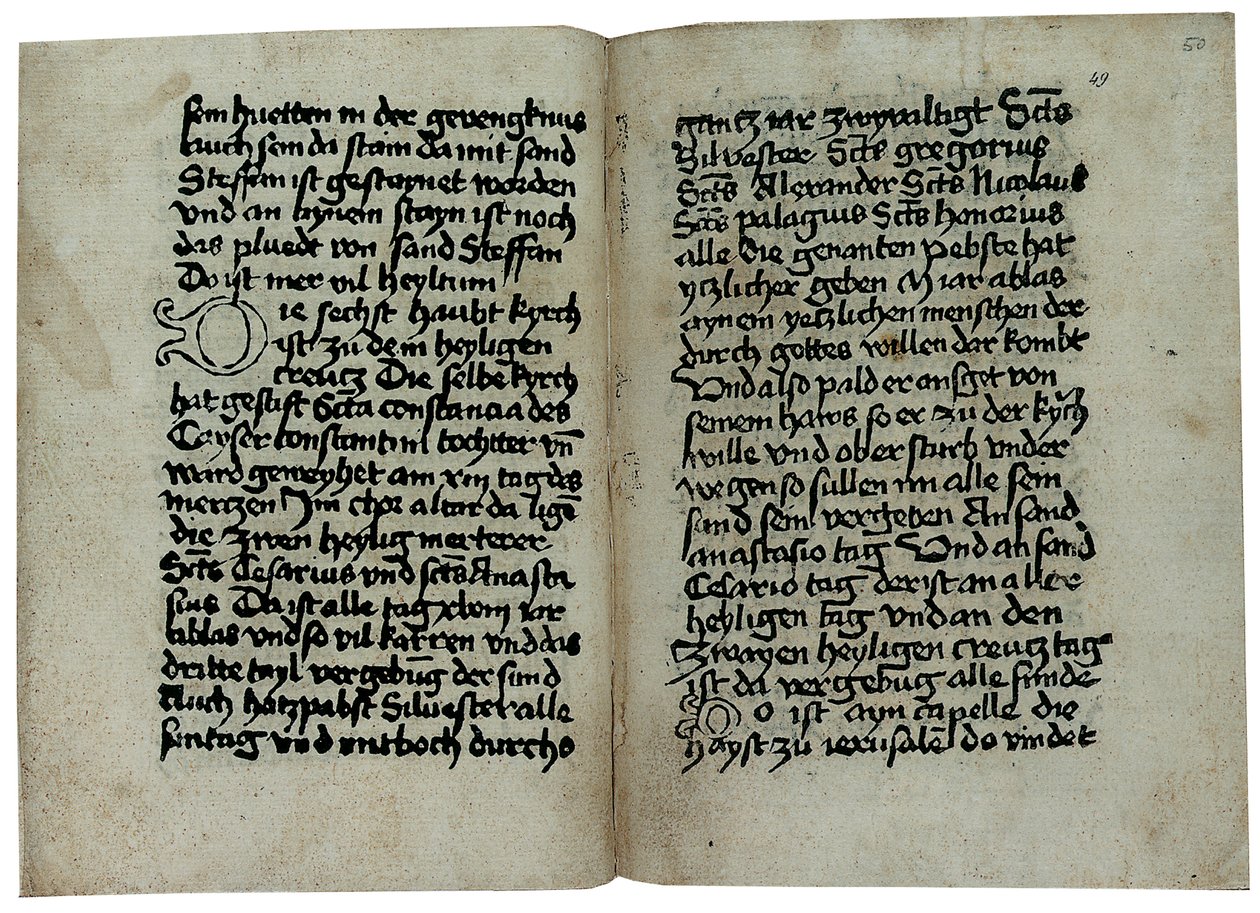 sein huetten in der gevengknus
Auch sein da stain da mit sand
Steffan ist gestaynet worden
vnd an aynem stayn ist noch
das pluedt von sand Steffan
Do ist mer vil heyltum
Die sechst haubt kyrch
ist zu dem heyligen
creutz Die selbe kyrch
hat gestift Scta constancia des
Cayser constantini tochtter vn̄
ward geweyhet am xiij tag des
mertzen Im chor altar da lige͞
die zwen heylig merterer
Scts Cesarius vnd scts Anasta
sius Da ist alle tag xlviij iar
ablas vnd so vil karren vnd das
dritte tayl vergebūg der sund
Auch hat pabst Silvester alle
suntag vnd mitboch durchs
50
49
gantz iar zwyvaltigt Scts
Silvaster Scts gregorius
Scts Alexander Scts Nicolaus
Scts palagius Scts honorius
alle die genanten pebste hat
yczlicher geben M iar ablas
aynem yetzlichen menschen der
durch gottes willen dar kombt
Vnd also pald er ausget von
seinem haws so er zu der kyrch
wille vnd ob er sturb vnder
wegen so sullen im alle sein
sund sein vergeben An sand
anastasio tag Vnd an sand
Cesario tag der ist an aller
heyligen tag vnd an den
zwayen heyligen creutz tag
ist da vergebūg alle sunde
Do ist ayn capelle die
hayst zu ierusalē do vindet